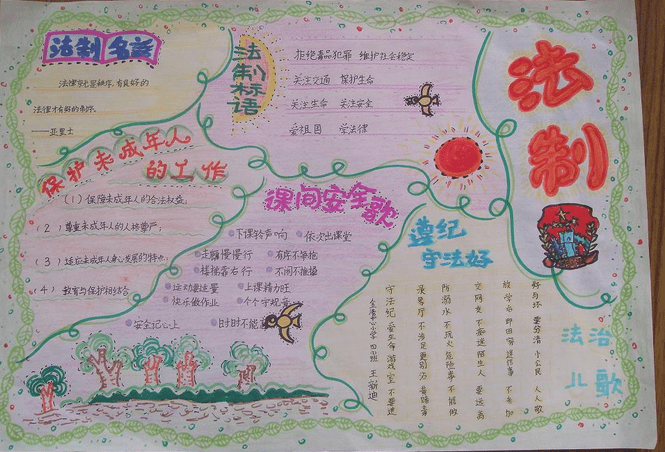 法制名言
法律就是秩序,有良好的
法律才有好的秩序。
——亚里士
法制标语
拒绝毒品犯罪 维护社会稳定
关注交通 保护生命
关注生命 关注安全
爱祖国 学法律
法制
保护未成年人
的工作
(1)保障未成年人的合法权益;
(2)尊重未成年人的人格尊严;
(3)适应未成年人身心发展的特点;
(4)教育与保护相结合
课间安全歌
下课铃声响 依次出课堂
走廊慢慢行 有序不争抢
楼梯靠右行 不闹不推搡
运动要适量 上课精力旺
快乐做作业 个个守规章
安全记心上 时时不能
遵纪
守法好
法治
儿歌
好与坏 要分清 小公民 人人敬
放学后 即回家 不参加
交网友 不 陌生人 要远离
防溺水 不玩火 危险事 不能做
录像厅 不涉足
守法纪 爱生命 游戏室 不要进
小学 四班 王